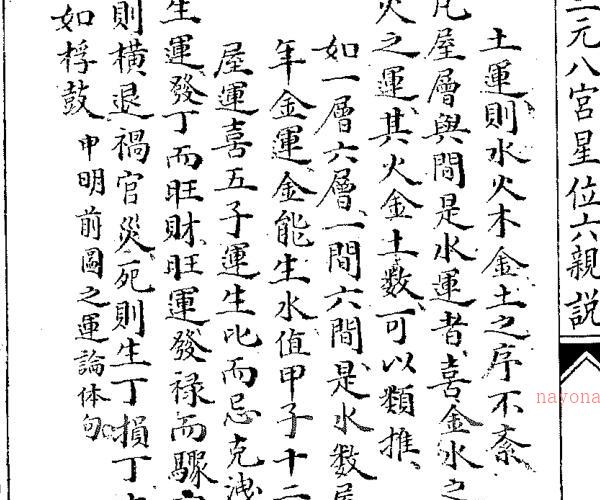 三元八宮星位六親說
土運則水火木金土之序不紊
凡屋層與間是水運者喜金水之
火之運其火金土數可以類推
如一層六層一間六間是水數屋
年金運金能生水值甲子十二
屋運喜五子運生比而忌克洩
生運發丁而旺財旺運發祿而驟
則橫退禍官災死則生丁損丁
如桴鼓 申明前圖之運論体句
nayona